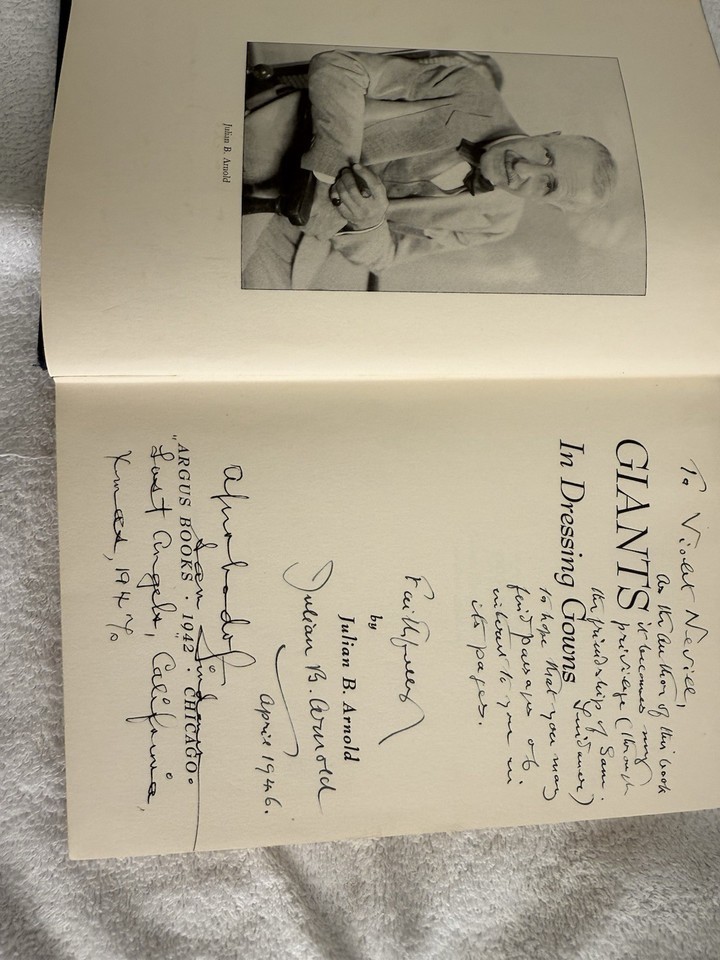 Julian B. Arnold
To Violet Nevile,
as the author of this book
it becomes my
GIANTS
privilege (through
the friendship of Sam.
In Dressing Gowns
to hope that you may
find passages of
interest to you in
its pages.
Faithfully
by
Julian B. Arnold
Julian B. Arnold
April 1946.
Sam
"ARGUS BOOKS · 1942 · CHICAGO
Lost Angels, California,
Xmas, 1947